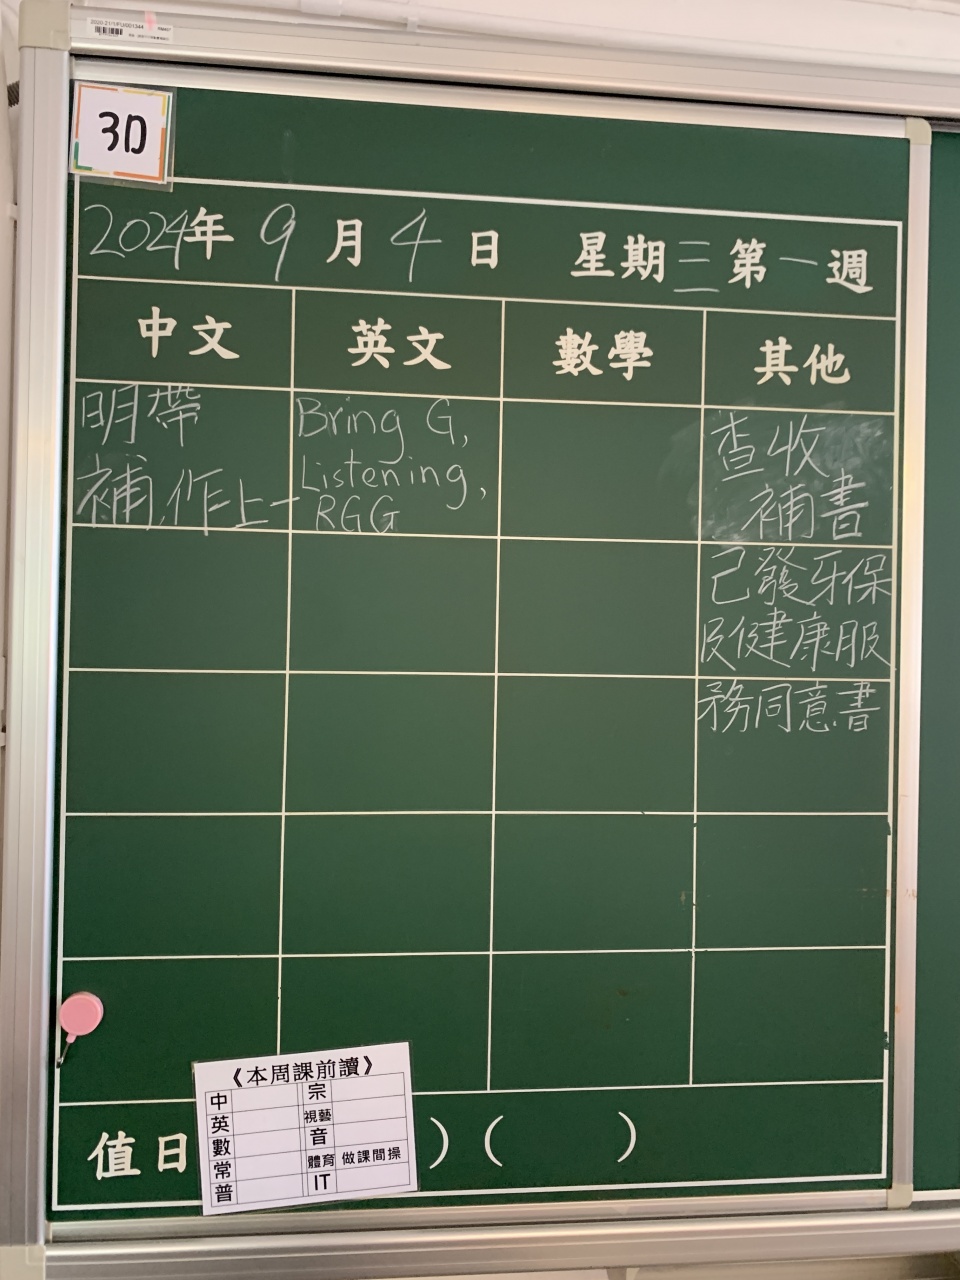 3D
2024年 9月4日 星期三 第一週
中文 英文 數學 其他
明帶
補,作上一
Bring G,
Listening,
RGG
查收
補書
己發牙保
及健康服
務同意書
《本周課前讀》
中 宗
英 視藝
數 音
常 體育 做課間操
普 IT
值日 )( )